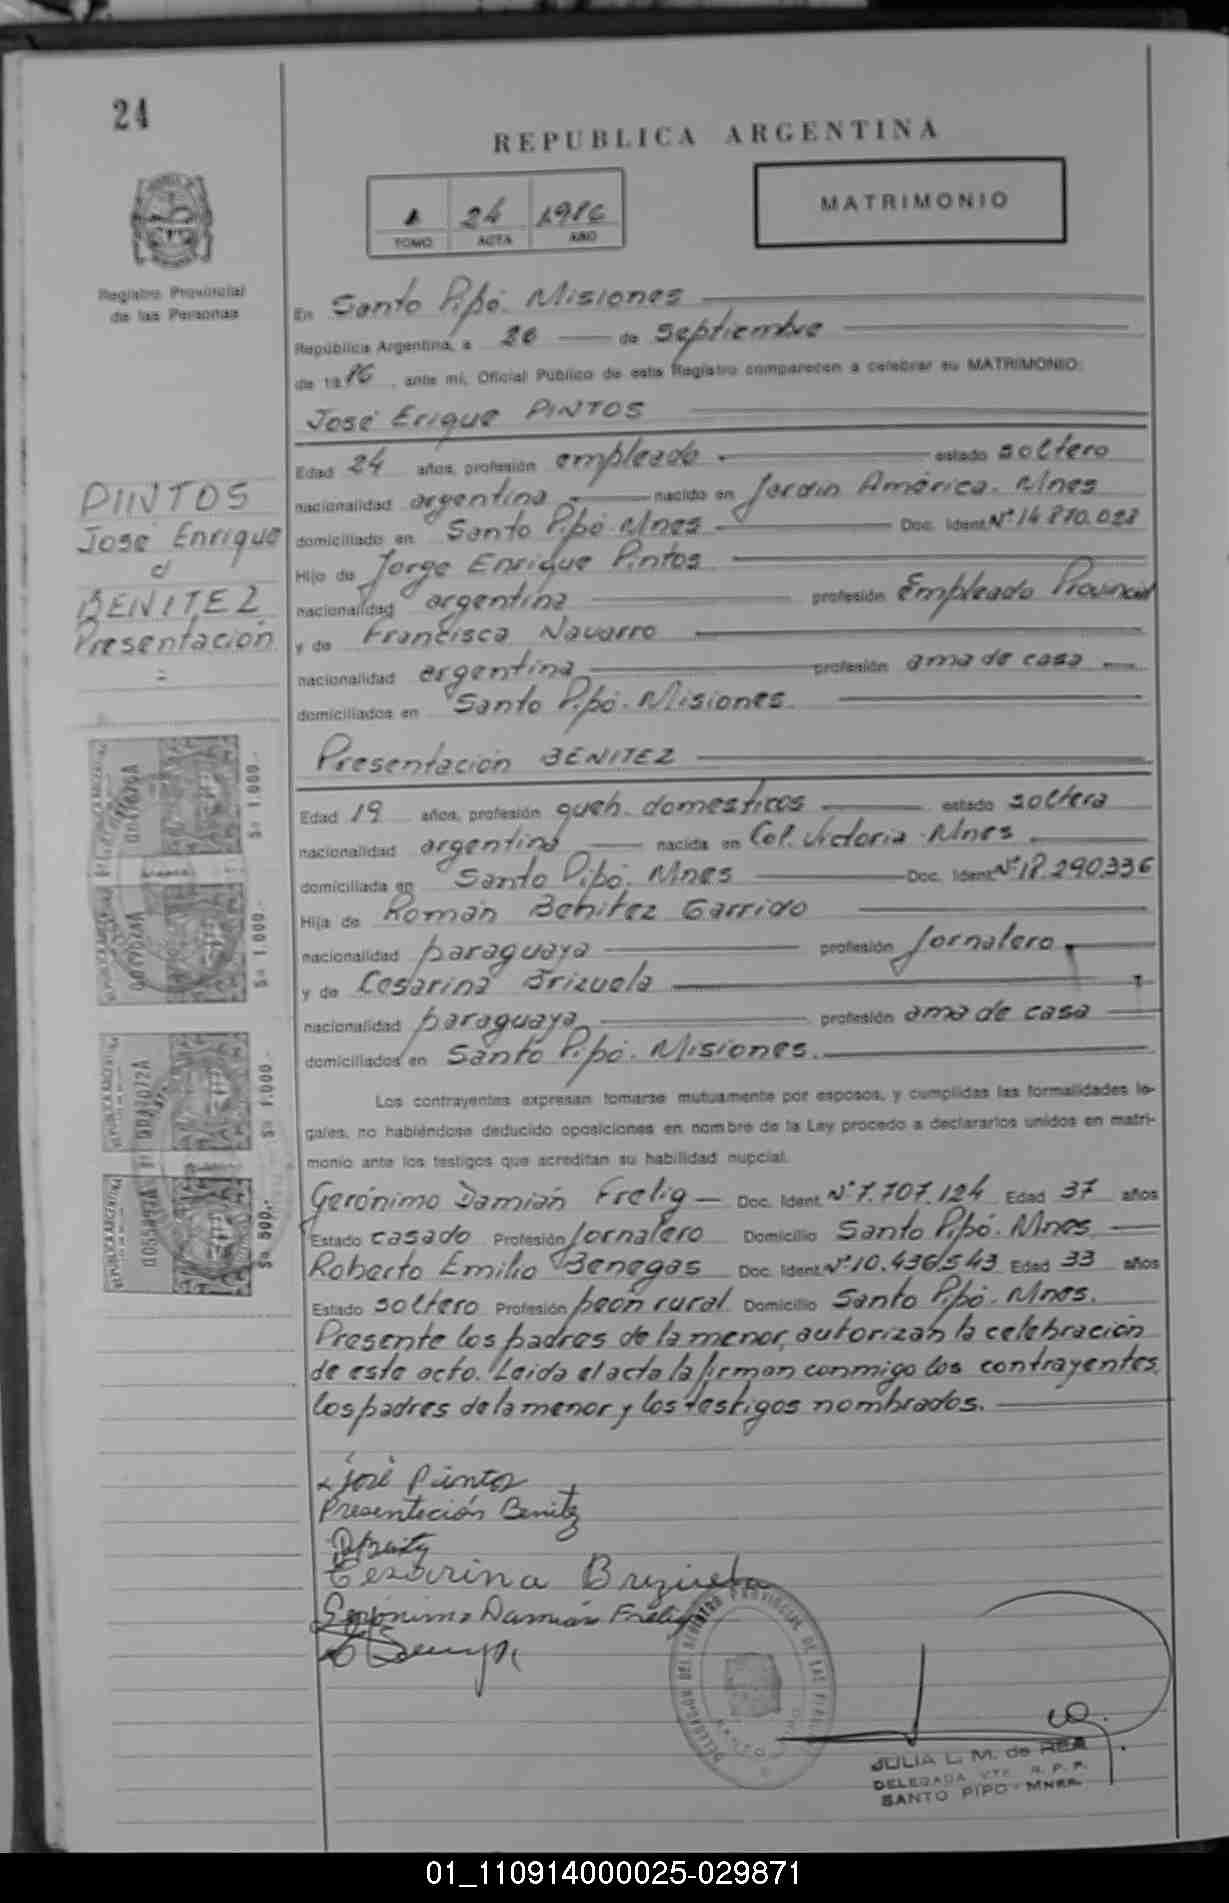 24
REPUBLICA ARGENTINA
1 24 1986
TOMO ACTA AÑO
MATRIMONIO
Registro Provincial
de las Personas
En Santo Pipó. Misiones
República Argentina, a 26 de septiembre
de 1986, ante mí, Oficial Público de este Registro comparecen a celebrar su MATRIMONIO:
José Erique PINTOS
Edad 24 años, profesión empleado estado soltero
nacionalidad argentina nacido en Jardín América. Mnes
domiciliado en Santo Pipó. Mnes Doc. Ident. Nº 14.870.028
Hijo de Jorge Enrique Pintos
nacionalidad argentina profesión Empleado Provincial
y de Francisca Navarro
nacionalidad argentina profesión ama de casa
domiciliados en Santo Pipó. Misiones
PINTOS
José Enrique
c/
BENITEZ
Presentación
Presentación BENITEZ
Edad 19 años, profesión queh. domesticos estado soltera
nacionalidad argentina nacida en Col. Victoria. Mnes
domiciliada en Santo Pipó. Mnes Doc. Ident. Nº 18.290.336
Hija de Román Benitez Garrido
nacionalidad paraguaya profesión Jornalero
y de Cesarina Brizuela
nacionalidad paraguaya profesión ama de casa
domiciliados en Santo Pipó. Misiones.
$a 1.000.-
$a 1.000.-
$a 1.000.-
$a 500.-
Los contrayentes expresan tomarse mutuamente por esposos, y cumplidas las formalidades le-
gales, no habiéndose deducido oposiciones en nombre de la Ley procedo a declararlos unidos en matri-
monio ante los testigos que acreditan su habilidad nupcial.
Gerónimo Damián Frelig Doc. Ident. Nº 7.707.124 Edad 37 años
Estado casado Profesión Jornalero Domicilio Santo Pipó. Mnes
Roberto Emilio Benegas Doc. Ident. Nº 10.436.543 Edad 33 años
Estado soltero Profesión peón rural Domicilio Santo Pipó. Mnes.
Presente los padres de la menor, autorizan la celebración
de este acto. Leida el acta la firman conmigo los contrayentes,
los padres de la menor y los testigos nombrados.
José Pintos
Presentación Benitez
Cesarina Brizuela
Gerónimo Damián Frelig
DELEGACION DEL REGISTRO PROVINCIAL DE LAS
JULIA L. M. de REA
DELEGADA R. P. P.
SANTO PIPO - MNES.
01_110914000025-029871